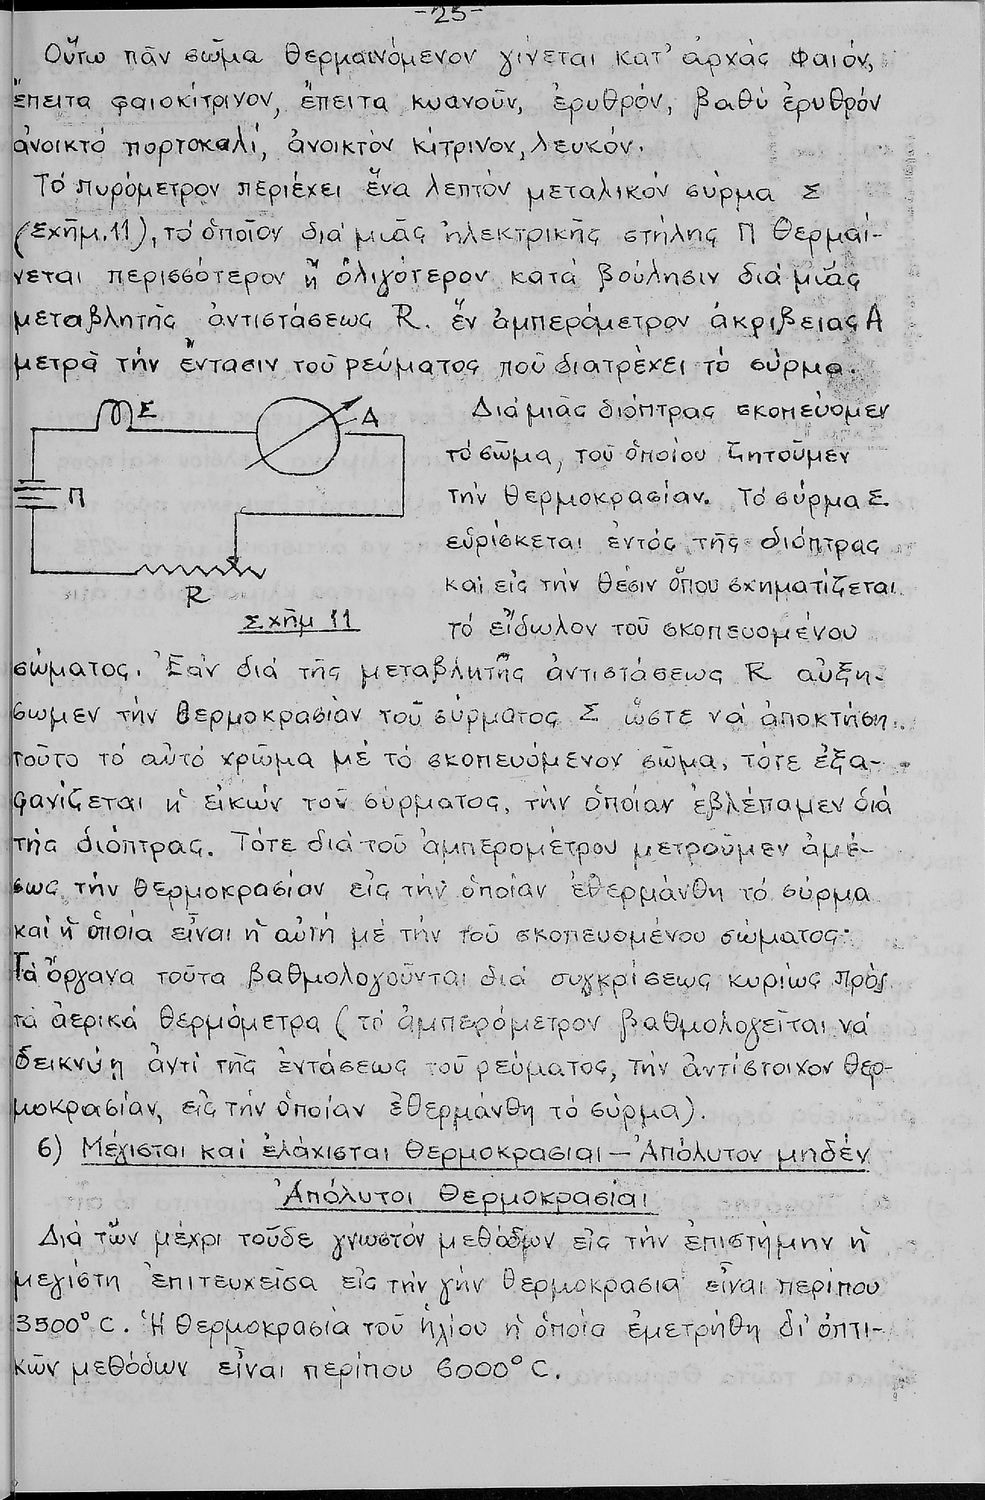 -25-
Οὕτω πᾶν σῶμα θερμαινόμενον γίνεται κατ' ἀρχάς φαιόν,
ἔπειτα φαιοκίτρινον, ἔπειτα κυανοῦν, ἐρυθρόν, βαθύ ἐρυθρόν
ἀνοικτό πορτοκαλί, ἀνοικτόν κίτρινον, λευκόν.
Τό πυρόμετρον περιέχει ἕνα λεπτόν μεταλικόν σύρμα Σ
(Σχῆμ.11), τό ὁποῖον διά μιᾶς ἠλεκτρικῆς στήλης Π θερμαί-
νεται περισσότερον ἤ ὀλιγότερον κατά βούλησιν διά μιᾶς
μεταβλητῆς ἀντιστάσεως R. ἕν ἀμπερόμετρον ἀκριβείας Α
μετρᾶ τήν ἔντασιν τοῦ ρεύματος πού διατρέχει τό σύρμα.
Σ
Α
Π
R
Σχῆμ 11
Διά μιᾶς διόπτρας σκοπεύομεν
τό σῶμα, τοῦ ὁποίου ζητοῦμεν
τήν θερμοκρασίαν. Τό σύρμα Σ
εὑρίσκεται ἐντός τῆς διόπτρας
καί εἰς τήν θέσιν ὅπου σχηματίζεται
τό εἴδωλον τοῦ σκοπευομένου
σώματος. Ἐάν διά τῆς μεταβλητῆς ἀντιστάσεως R αὐξή-
σωμεν τήν θερμοκρασίαν τοῦ σύρματος Σ ὥστε νά ἀποκτήση
τοῦτο τό αὐτό χρῶμα μέ τό σκοπευόμενον σῶμα, τότε ἐξα-
φανίζεται ἡ εἰκών τοῦ σύρματος, τήν ὁποίαν ἐβλέπαμεν διά
τῆς διόπτρας. Τότε διά τοῦ ἀμπερομέτρου μετροῦμεν ἀμέ-
σως τήν θερμοκρασίαν εἰς τήν ὁποίαν ἐθερμάνθη τό σύρμα
καί ἡ ὁποία εἶναι ἡ αὐτή μέ τήν τοῦ σκοπευομένου σώματος.
Τά ὄργανα τοῦτα βαθμολογοῦνται διά συγκρίσεως κυρίως πρός
τά ἀερικά θερμόμετρα (τό ἀμπερόμετρον βαθμολογεῖται νά
δεικνύη ἀντί τῆς ἐντάσεως τοῦ ρεύματος, τήν ἀντίστοιχον θερ-
μοκρασίαν, εἰς τήν ὁποίαν ἐθερμάνθη τό σύρμα).
6) Μέγισται καί ἐλάχισται θερμοκρασίαι – Ἀπόλυτον μηδέν
Ἀπόλυτοι θερμοκρασίαι
Διά τῶν μέχρι τοῦδε γνωστόν μεθόδων εἰς τήν ἐπιστήμην ἡ
μεγίστη ἐπιτευχεῖσα εἰς τήν γήν θερμοκρασία εἶναι περίπου
3500° C. Ἡ θερμοκρασία τοῦ ἡλίου ἡ ὁποία ἐμετρήθη δι' ὀπτι-
κῶν μεθόδων εἶναι περίπου 6000° C.